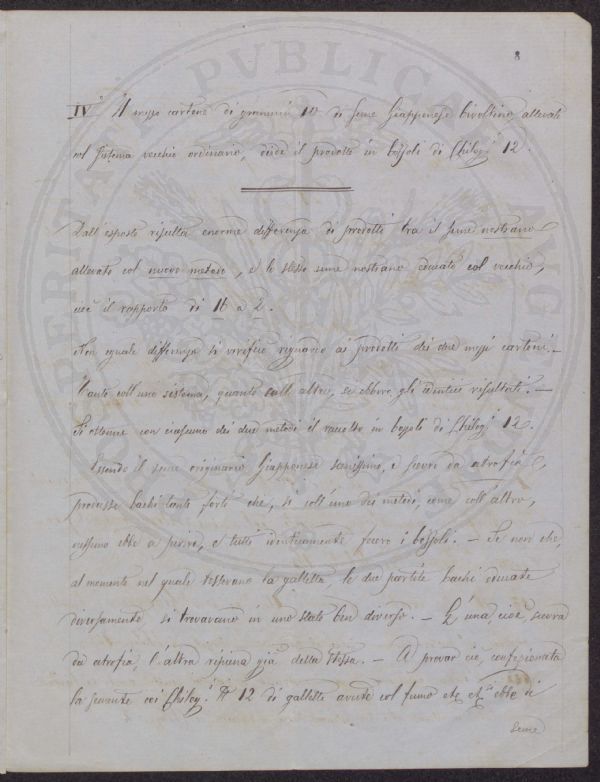 8
IV° Il mezzo cartone di grammi 10 di Seme Giapponese bivoltino, allevato
col Sistema vecchio ordinario, diede il prodotto in bozzoli di Chilogi 12.
Dall'esposto risulta enorme differenza di prodotti tra il Seme nostrano
allevato col nuovo metodo, e lo stesso seme nostrano educato col vecchio,
cioè il rapporto di 16 a 2.
Non eguale differenza si verificò riguardo ai prodotti dei due mezzi cartoni. –
Tanto coll'uno sistema, quanto coll'altro, si ebbero gli identici risultati. –
Si ottenne con ciascuno dei due metodi il raccolto in bozzoli di Chilogi 12.
Essendo il seme originario Giapponese sanissimo, e scevro da atrofia,
produsse bachi tanto forti che, sì coll'uno dei metodi, come coll'altro,
nessuno ebbe a perire, e tutti identicamente fecero i bozzoli. – Se non che,
al momento nel quale tesserano la galletta, le due partite bachi educate
diversamente, si trovavano in uno stato ben diverso. – L'una cioè, scevra
da atrofia, l'altra ripiena già della stessa. – A provar ciò, confezionata
la semente coi Chilogi 12 di gallette avute col fumo etc etc ebbe di
Seme
PUBLICA